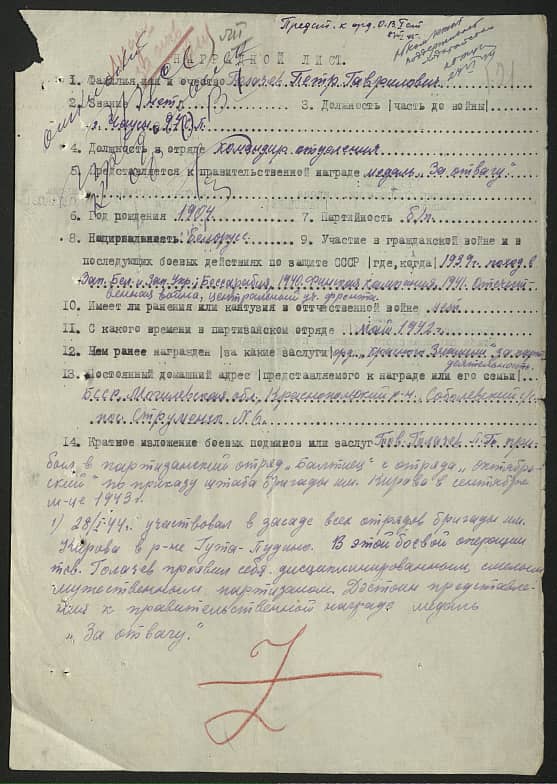 Предст. к орд. О.В. I ст
НАГРАДНОЙ ЛИСТ.
1. Фамилия имя и очество Голачев Петр Гаврилович.
2. Звание 3. Должность |часть до войны|
4. Должность в отряде командир отделения
5. Представляется к правительственной награде медаль „За отвагу"
6. Год рождения 1907. 7. Партийность б/п.
8. Национальность: Белорус 9. Участие в гражданской войне и в
последующих боевых действиях по защите СССР |где, когда| 1939г. поход в
Зап. Бел. и Зап. Укр; Бессарабия, 1940. Финская кампания, 1941. Отечест-
венная война, центральный уч. фронта.
10. Имеет ли ранения или кантузия в оттчественной войне нет.
11. С какого времени в партизанском отряде май 1942г.
12. Чем ранее награжден |за какие заслуги| орд. „Красного Знамени" за
деятельность.
13. Постоянный домашний адрес |представляемого к награде или его семьи|
БССР, Могилевская обл, Краснопольский р-н, Соболевский
пос. Струменск №6.
14. Краткое изложение боевых подвигов или заслуг Тов. Голачев П.Г. при-
был в партизанский отряд „Балтиец" с отряда „Октябрь-
ский" по приказу штаба бригады им. Кирова в сентябре
м-це 1943г.
1) 28/I-44г. участвовал в засаде всех отрядов бригады им.
Кирова в р-не Гута-Пудино. В этой боевой операции
тов. Голачев проявил себя дисциплинированным, смелым
мужественным, партизаном. Достоин представле-
ния к правительственной награде медаль
„За отвагу."